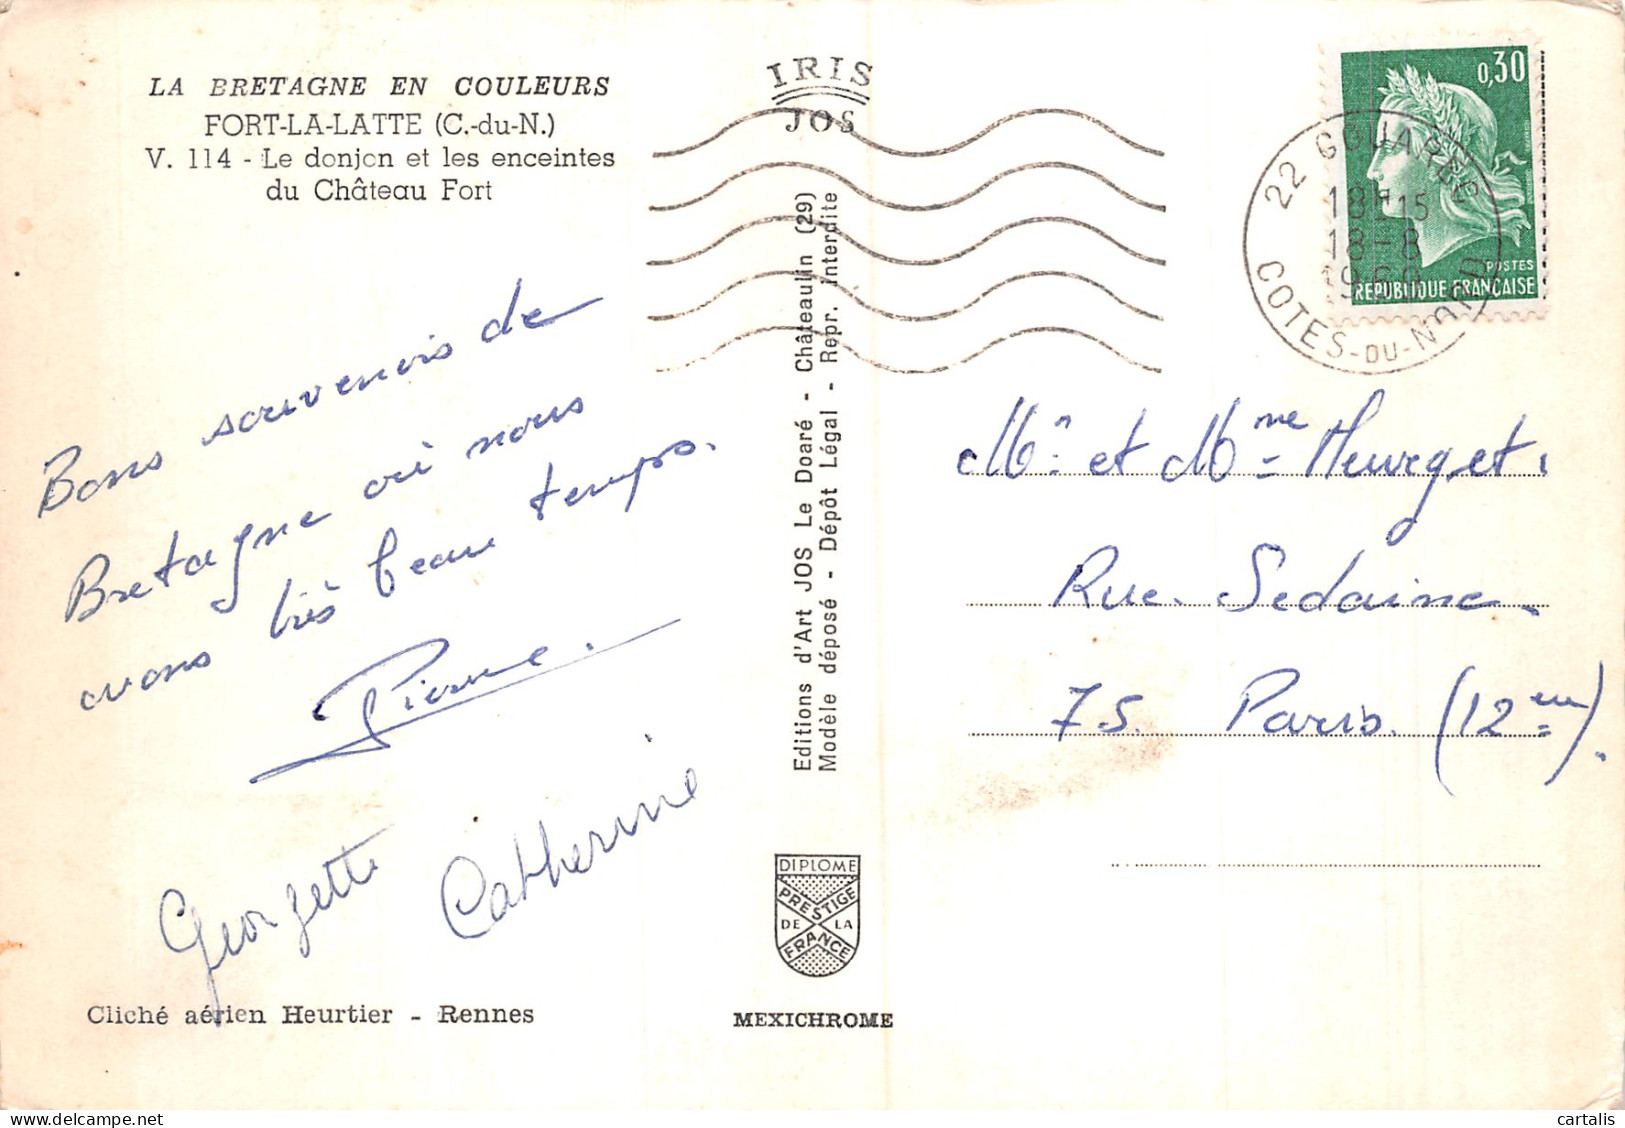 LA BRETAGNE EN COULEURS
FORT-LA-LATTE (C.-du-N.)
V. 114 - Le donjon et les enceintes
du Château Fort
IRIS
JOS
0,30
POSTES
REPUBLIQUE FRANÇAISE
22 GOUAREC
18H15
18-8
COTES-DU-NORD
Bons souvenirs de
Bretagne où nous
avons très beau temps.
Pierre.
Georgette
Catherine
Editions d'Art JOS Le Doaré - Châteaulin (29)
Modèle déposé - Dépôt Légal - Repr. interdite
Mr et Mme Heurget.
Rue Sedaine.
75. Paris. (12em).
DIPLOME
PRESTIGE
DE LA
FRANCE
Cliché aérien Heurtier - Rennes
MEXICHROME
cartalis